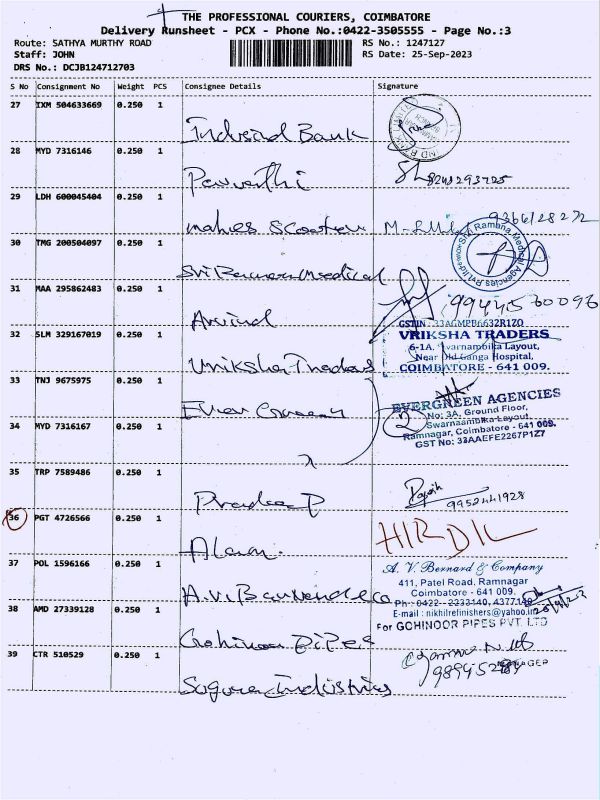 THE PROFESSIONAL COURIERS, COIMBATORE
Delivery Runsheet - PCX - Phone No.:0422-3505555 - Page No.:3
Route: SATHYA MURTHY ROAD RS No.: 1247127
Staff: JOHN RS Date: 25-Sep-2023
DRS No.: DCJB124712703
S No Consignment No Weight PCS Consignee Details Signature
27 IXM 504633669 0.250 1
Indusind Bank
28 MYD 7316146 0.250 1
Parvathi 8248293725
29 LDH 600045404 0.250 1
mahies Scooters 9366128272
30 TMG 200504097 0.250 1
Sri Ramana Medical
Sri Ramana Medical Agencies Pvt
31 MAA 295862483 0.250 1
Arvind
32 SLM 329167019 0.250 1
Vriksha Traders
GSTIN : 33AGMPB6632R1ZO
VRIKSHA TRADERS
6-1A, Swarnambika Layout,
Near Old Ganga Hospital,
COIMBATORE - 641 009.
33 TNJ 9675975 0.250 1
Ever Green
EVERGREEN AGENCIES
No: 3A, Ground Floor,
Swarnaambika Layout,
Ramnagar, Coimbatore - 641 009.
GST No: 33AAEFE2267P1Z7
34 MYD 7316167 0.250 1
2
35 TRP 7589486 0.250 1
Pradeep P
9952441928
36 PGT 4726566 0.250 1
37 POL 1596166 0.250 1
A.V. Barnend & Co
A. V. Bernard & Company
411, Patel Road, Ramnagar
Coimbatore - 641 009.
Ph : 0422 - 2233140, 4377140
E-mail : nikhilrefinishers@yahoo.in
38 AMD 27339128 0.250 1
Gohinoor Pipes
For GOHINOOR PIPES PVT. LTD
MANAGER
39 CTR 510529 0.250 1
Suguna Industries